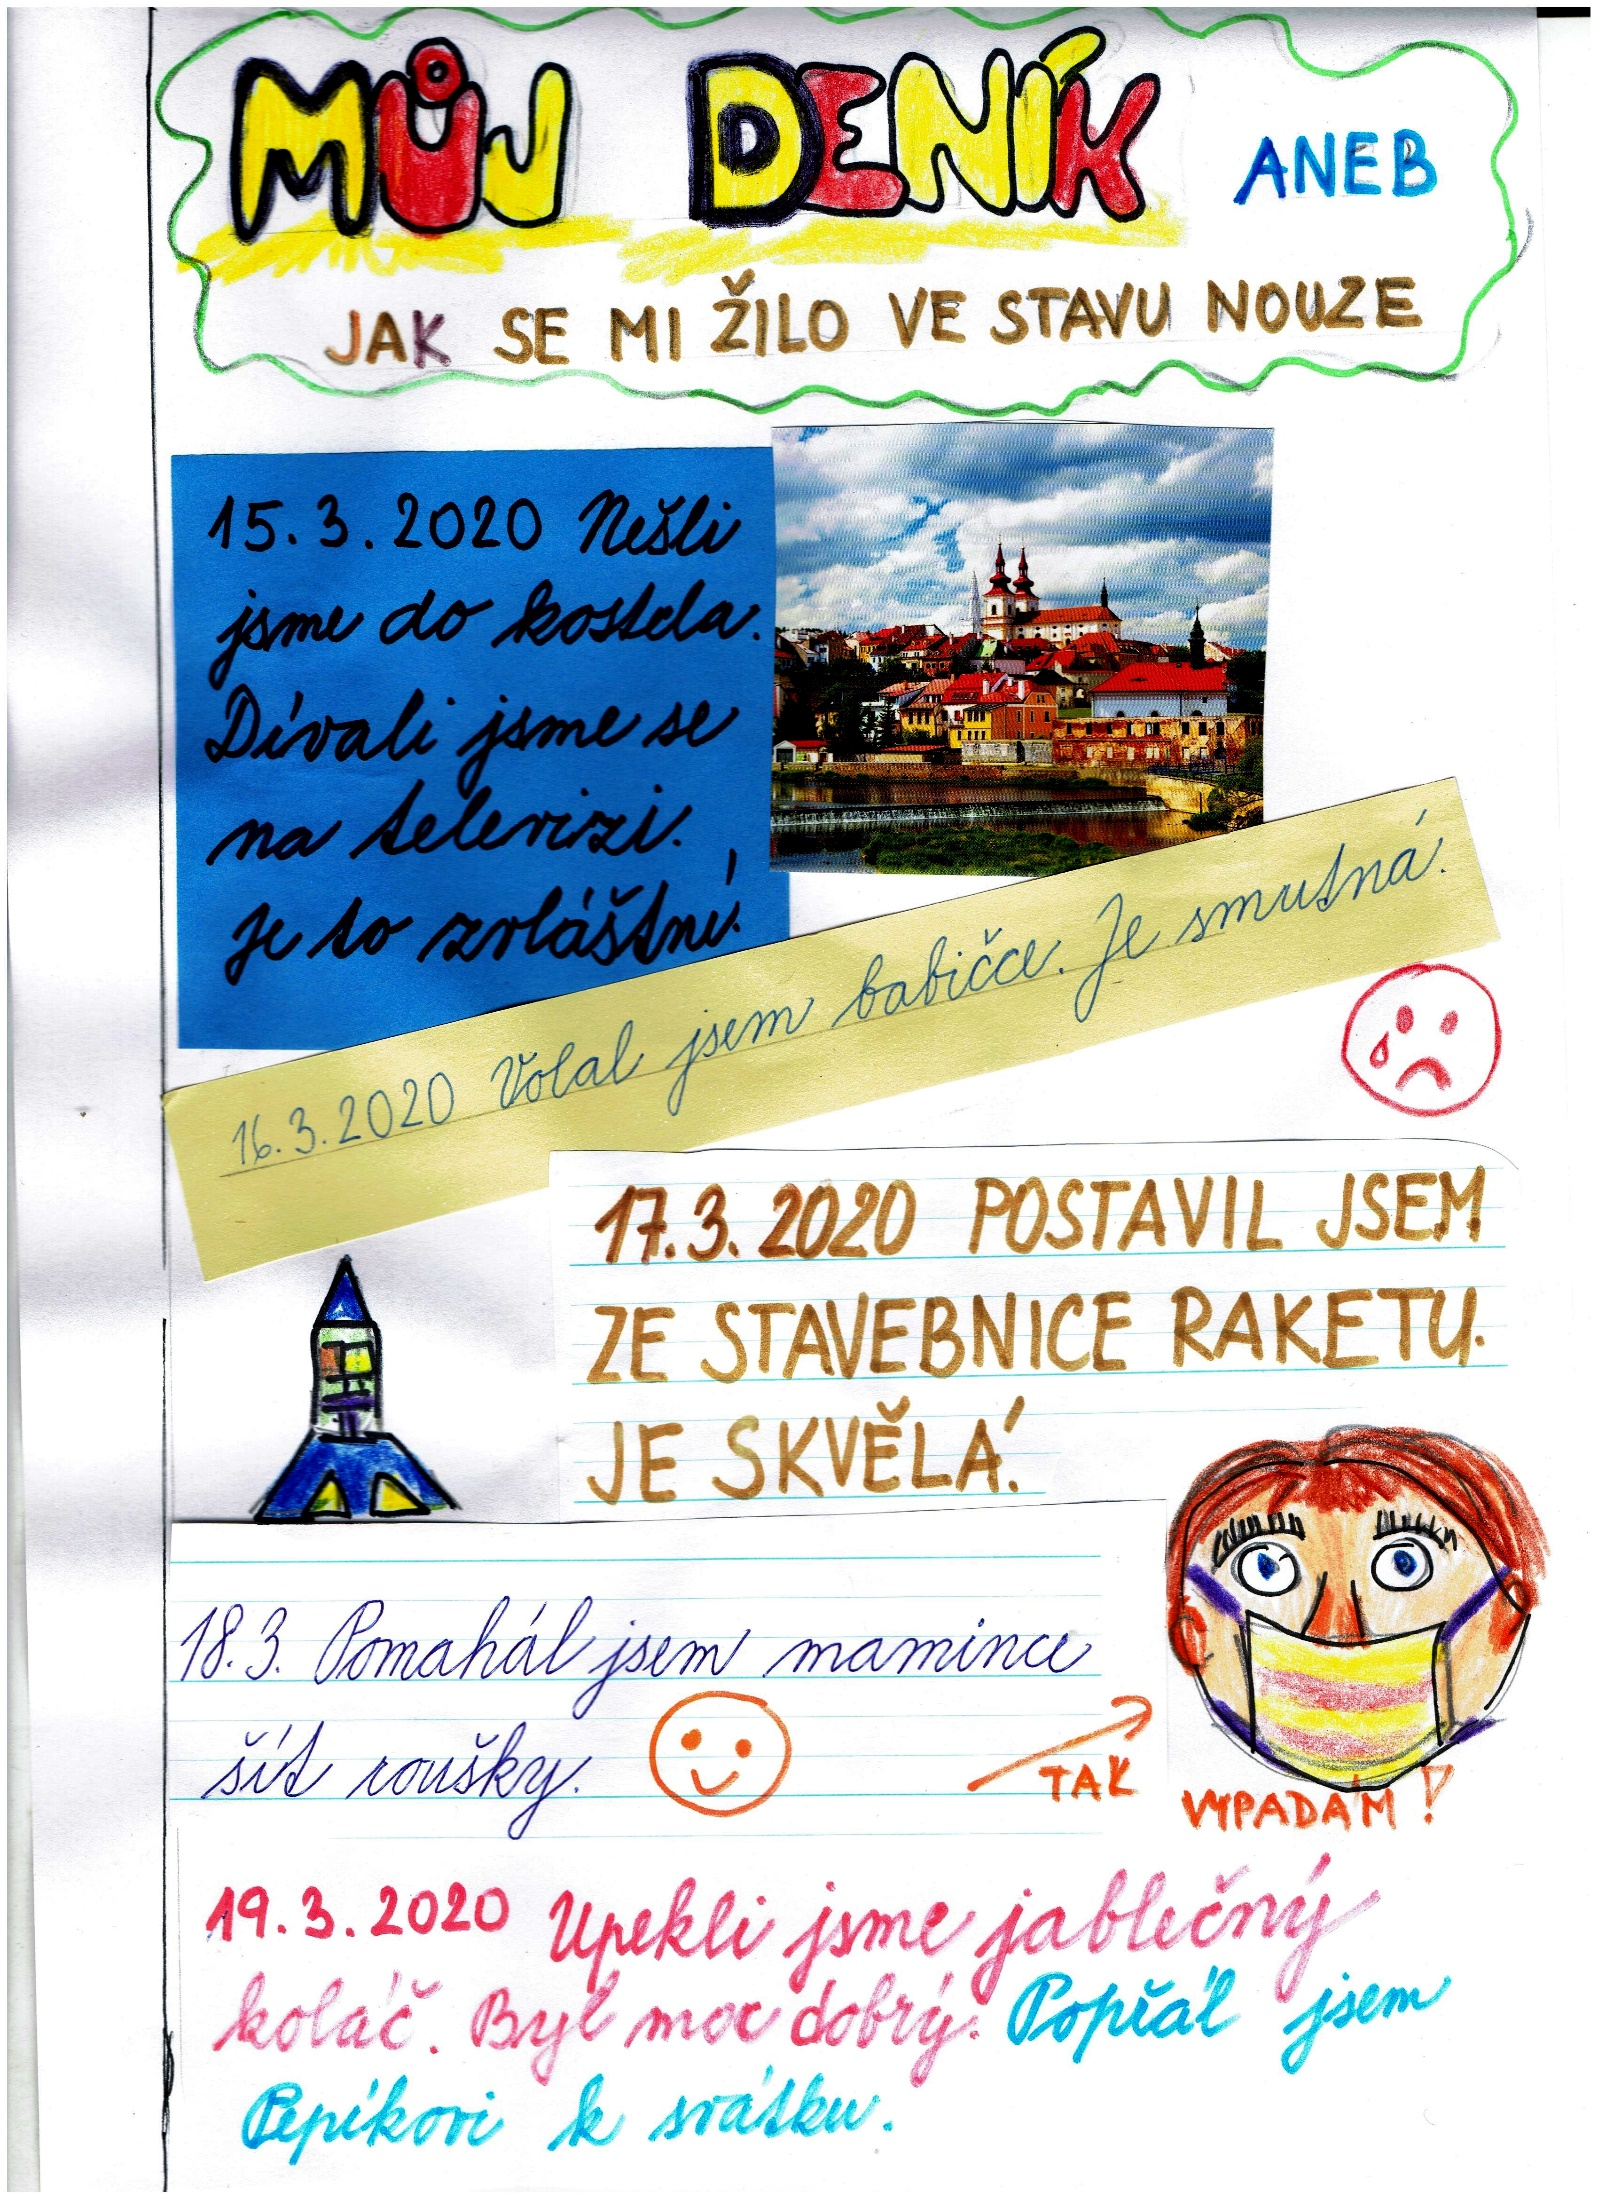 MŮJ DENÍK ANEB
JAK SE MI ŽILO VE STAVU NOUZE
15.3.2020 Nešli
jsme do kostela.
Dívali jsme se
na televizi.
Je to zvláštní.
16.3.2020 Volal jsem babičce. Je smutná.
17.3.2020 POSTAVIL JSEM
ZE STAVEBNICE RAKETU.
JE SKVĚLÁ.
18.3. Pomahál jsem mamince
šít roušky.
TAK
VYPADÁM!
19.3.2020 Upekli jsme jablečný
koláč. Byl moc dobrý. Popřál jsem
Pepíkovi k svátku.